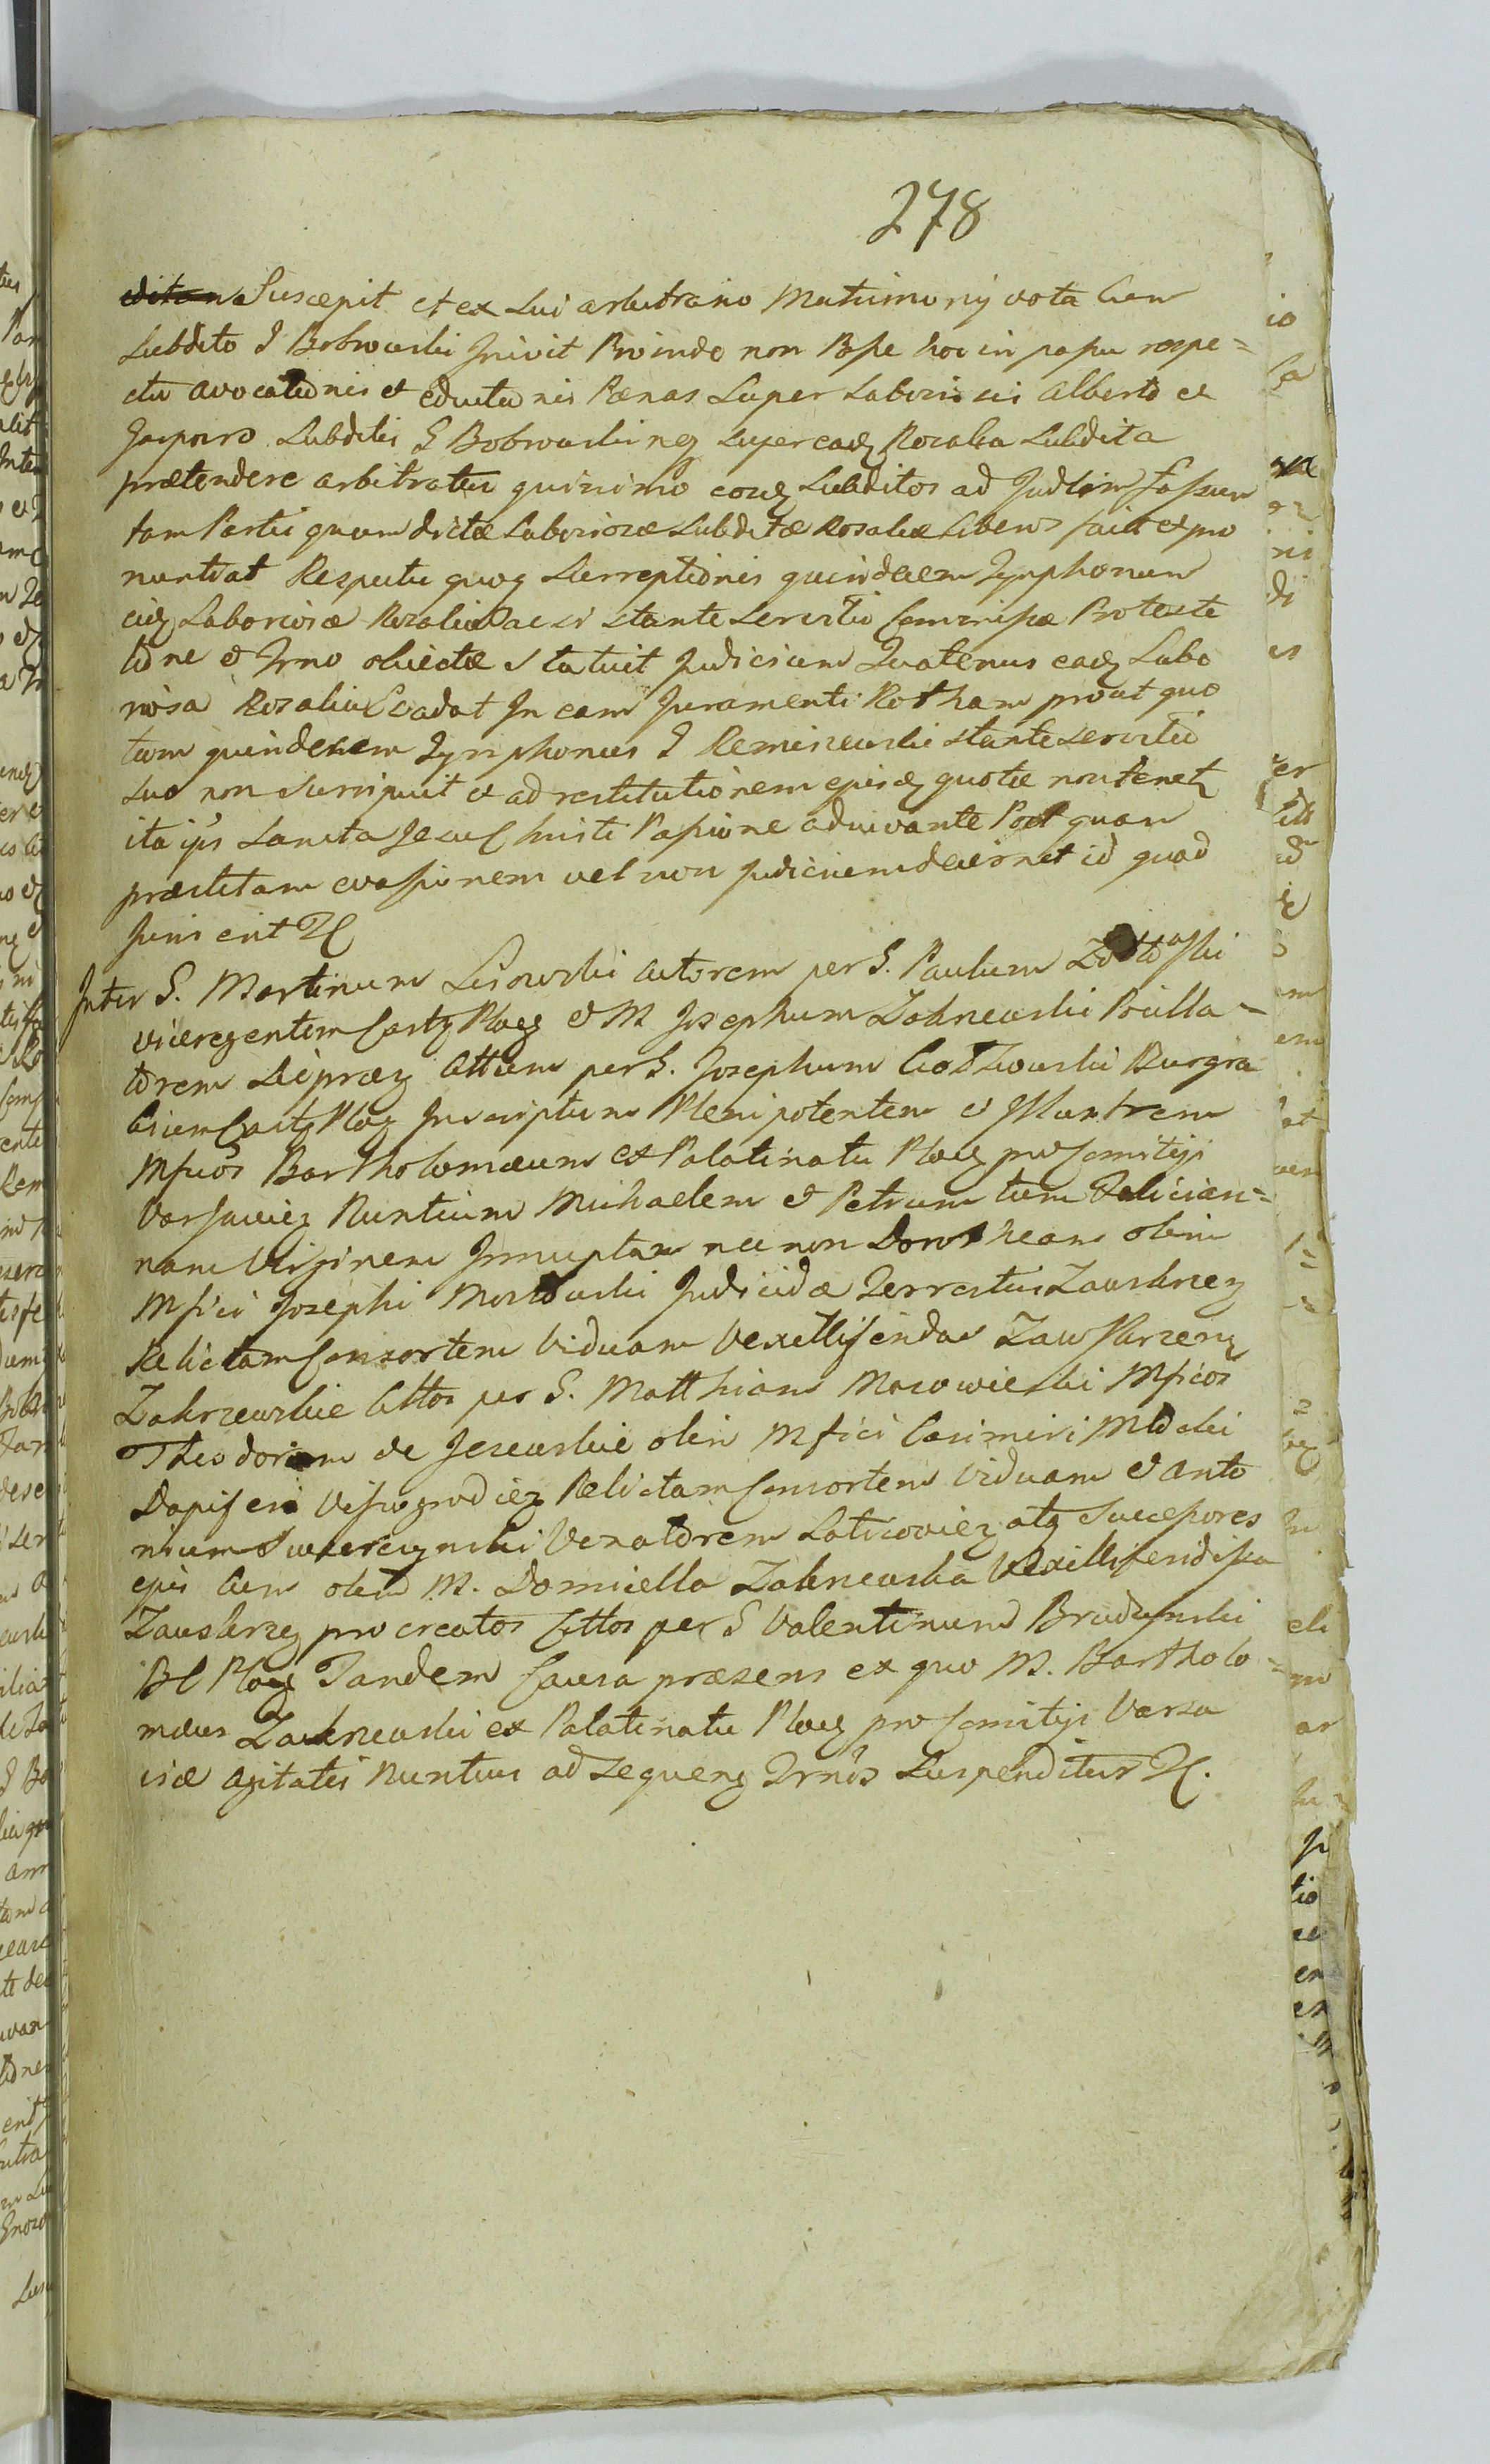 278
Suscepit et ex Sui arbitrario Matrimonij vota Cum
Subdito S Bobrowski Inivit Proinde non Posse hoc in passu respe=
ctu avocationis et eductionis Pænas Super Laboriosis Alberto et
Gasparo Subditis S Bobrowski neq Super eadq Rozalia Subdita
prætendere arbitratur quinimo eosdq Subditos ad Judlem
tam Partis quam dictæ Laboriosæ Subditæ Rosaliæ Liberos facit et pro
nuntiat Respectu quoq Surreptionis quindecem Tynphonum
eidq Laboriosæ Rozaliæ ac si stante Servitio Commissæ Protesta
tione et Trno obiectæ Statuit Judicium Quatenus eadq Labo
riosa Rozalia Evadat In eam Juramenti Rotham prout quo
tam quindecem Tynphonus S stante Servitio
Suo non Surripuit et ad restitutionem ejusdq quotæ non tenetq
ita ips Sancta Jesu Christi Passione adiuvante Post quam
præstitam evasionem vel non Judicium decernet id quod
Juris erit
Inter S. Martinum Lisowski Actorem per S. Paulum
viceregentem Castq Plocq et M Josephum Zakrzewski Pocilla=
torem Sieprcq Cttum per S. Josephum Burgra
bium Castq Plocq Inscriptum Plenipotentem et Illustrem
Mficos Bartholomæum ex Palatinatu Plocq pro Comitijs
Varsavieq Nuntium Michaelem et Petrum tum Felician=
nam Virginem Innuptam nec non Dorotheam olim
Mfici Josephi Mostowski Judicidæ Terrestris Zawskrzeq
Relictam Consortem Viduam Vexilliferidas Zawskrzenq
Zakrzewskie Cttos per S. Matthiam Mazowieski Mficos
Theodoram de Jezewskie olim Mfici Casimiri Mlocki
Dapiferi Vissogrodieq Relictam Consortem Viduam et Anto
nium Venatorem atq Successores
ejus Cum olim M. Domicella Zakrzewska Vexilliferidissa
Zawskrzeq procreatos Cittos per S Valentinum Brudzynski
Plocq Tandem Causa præsens ex quo M. Bartholo=
mæus Zakrzewski ex Palatinatu Plocq pro Comitijs Varsa
viæ agitatis Nuntius ad Sequenq Trnos Suspenditur